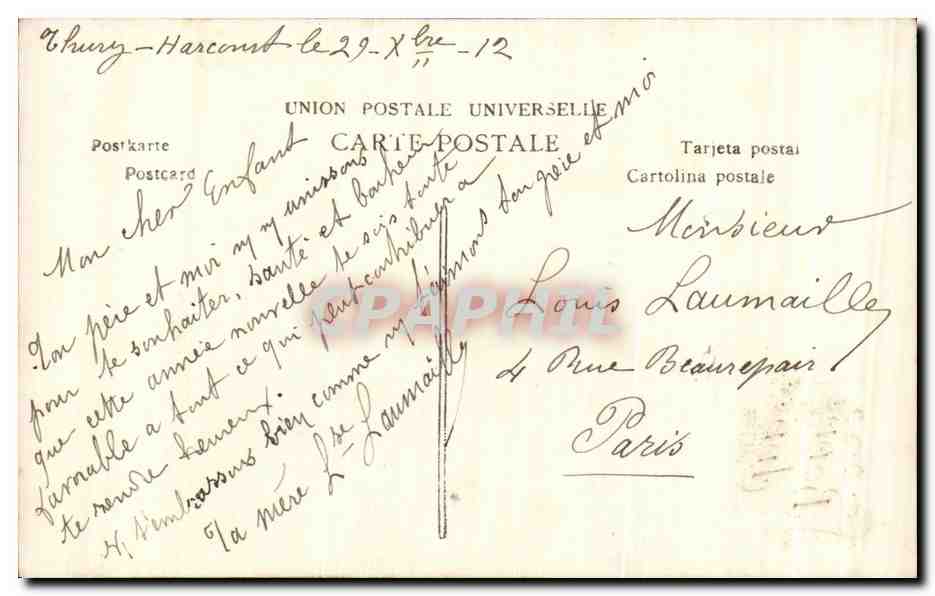 Thury-Harcourt le 29-Xbre-12
UNION POSTALE UNIVERSELLE
CARTE POSTALE
Postkarte
Postcard
Tarjeta postal
Cartolina postale
Mon cher Enfant
Ton père et moi ns ns unissons
pour te souhaiter, santé et bonheur
que cette année nouvelle te sois toute
favorable a tout ce qui peut contribuer a
te rendre heureux.
Ns t'embrassons bien comme ns t'aimons ton père et moi
Ta mère Lse Laumaille
Monsieur
Louis Laumaille
4 Rue Beaurepair
Paris
CPAPHIL